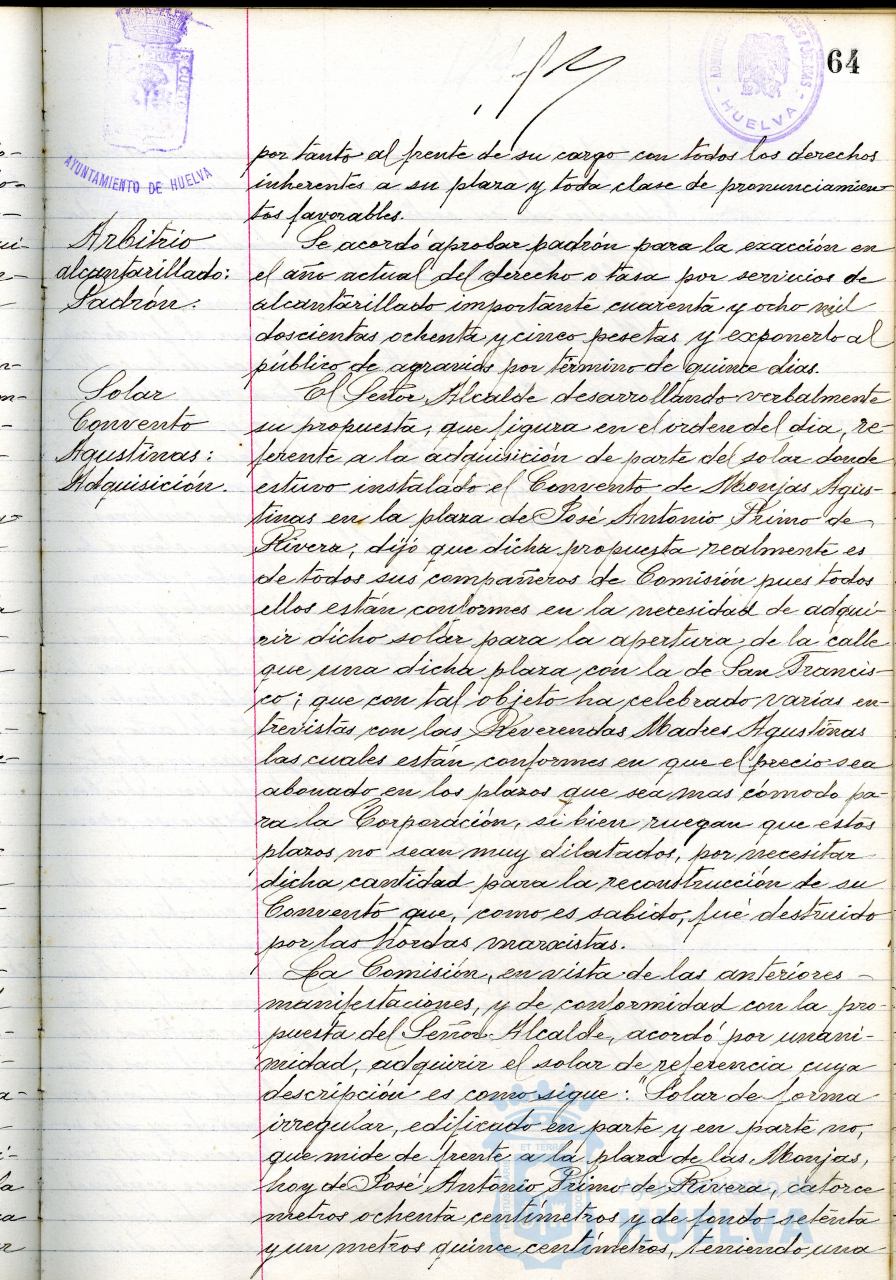 64
AYUNTAMIENTO DE HUELVA
HUELVA
por tanto al frente de su cargo con todos los derechos
inherentes a su plaza y toda clase de pronunciamien-
tos favorables.
Arbitrio
alcantarillado:
Padrón.
Se acordó aprobar padrón para la exacción en
el año actual del derecho o tasa por servicios de
alcantarillado importante cuarenta y ocho mil
doscientas ochenta y cinco pesetas y exponerlo al
público de agravios por término de quince dias.
Solar
Convento
Agustinas:
Adquisición.
El Señor Alcalde desarrollando verbalmente
su propuesta, que figura en el orden del dia, re-
ferente a la adquisición de parte del solar donde
estuvo instalado el Convento de Monjas Agus-
tinas en la plaza de José Antonio Primo de
Rivera, dijo que dicha propuesta realmente es
de todos sus compañeros de Comisión pues todos
ellos están conformes en la necesidad de adqui-
rir dicho solar para la apertura de la calle
que una dicha plaza con la de San Francis-
co; que con tal objeto ha celebrado varias en-
trevistas con las Reverendas Madres Agustinas
las cuales están conformes en que el precio sea
abonado en los plazos que sea mas cómodo pa-
ra la Corporación, si bien ruegan que estos
plazos no sean muy dilatados, por necesitar
dicha cantidad para la reconstrucción de su
Convento que, como es sabido, fué destruido
por las hordas marxistas.
La Comisión, en vista de las anteriores
manifestaciones, y de conformidad con la pro-
puesta del Señor Alcalde, acordó por unani-
midad, adquirir el solar de referencia cuya
descripción es como sigue: "Solar de forma
irregular, edificado en parte y en parte no,
que mide de frente a la plaza de las Monjas,
hoy de José Antonio Primo de Rivera, catorce
metros ochenta centímetros y de fondo setenta
y un metros quince centímetros, teniendo una
Ayuntamiento de
HUELVA